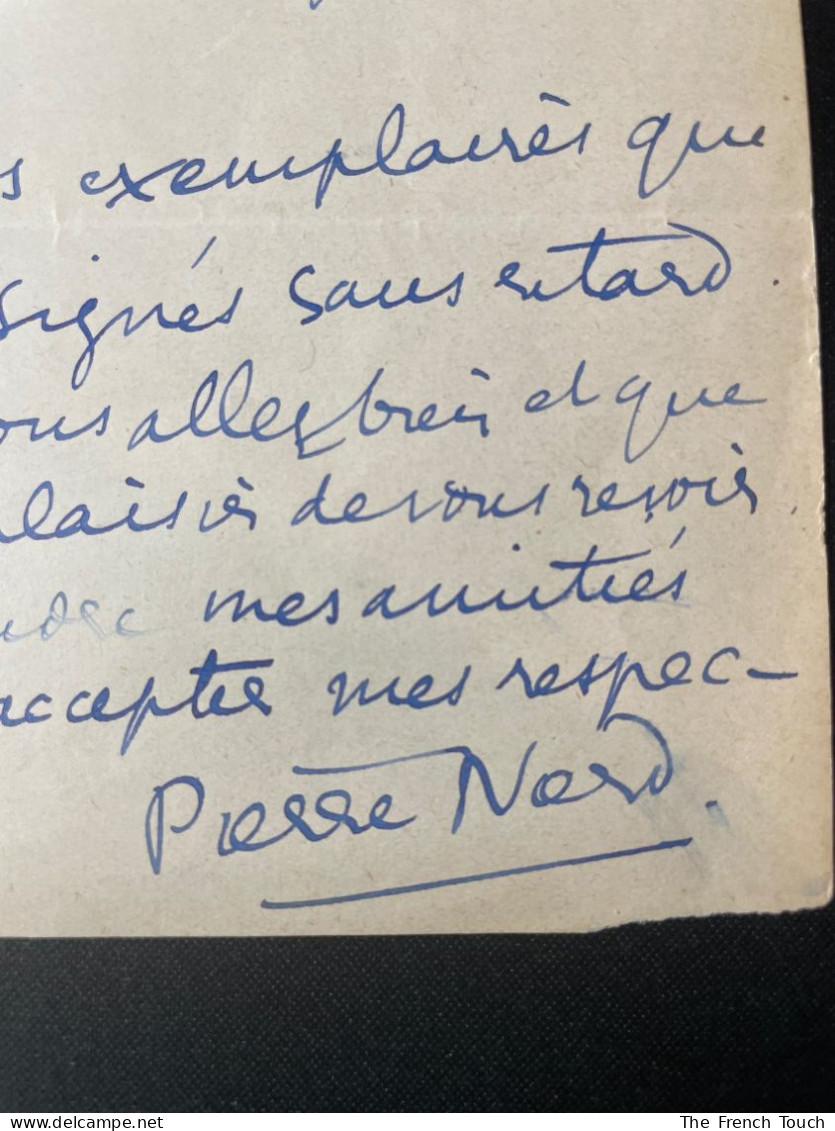 s exemplaires que
signés sans retard.
ous allez bien et que
plaisir de vous revoir.
mes amitiés
accepter mes respec-
Pierre Nord.
delcampe.net
The French Touch